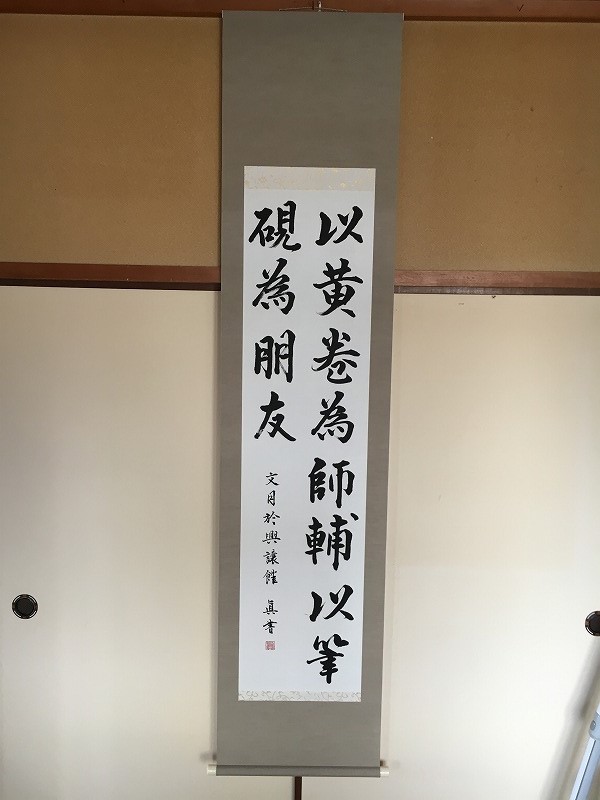 以黄巻為師輔以筆
硯為朋友
文月於興譲館 真書